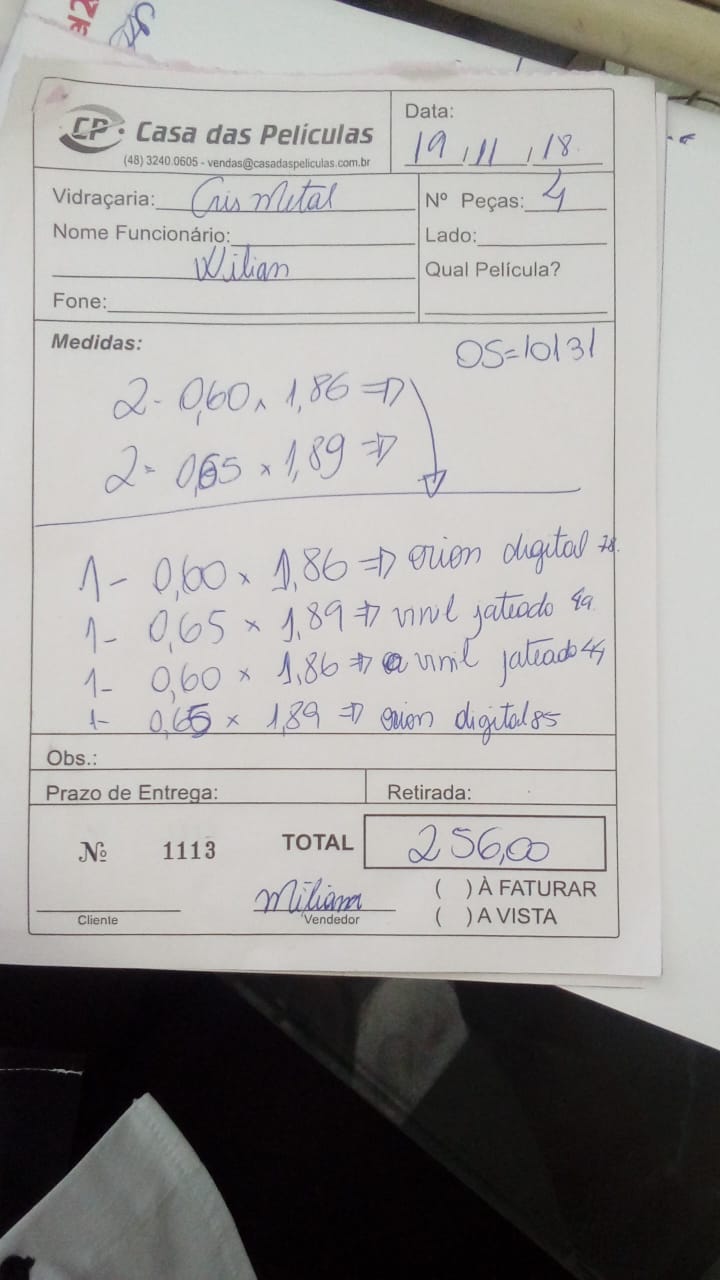 CP. Casa das Películas
(48) 3240.0605 - vendas@casadaspeliculas.com.br
Data:
19/11/18
Vidraçaria: Cris Metal
Nº Peças: 4
Nome Funcionário:
Wilian
Lado:
Qual Película?
Fone:
Medidas:
OS=10131
2- 0,60 x 1,86 =>
2- 0,65 x 1,89 =>
1- 0,60 x 1,86 => orion digital 78.
1- 0,65 x 1,89 => vinil jateado
1- 0,60 x 1,86 => vinil jateado 44
1- 0,65 x 1,89 => orion digital 85
Obs.:
Prazo de Entrega:
Retirada:
Nº 1113
TOTAL 256,00
Miliana
Cliente
Vendedor
( ) À FATURAR
( ) A VISTA